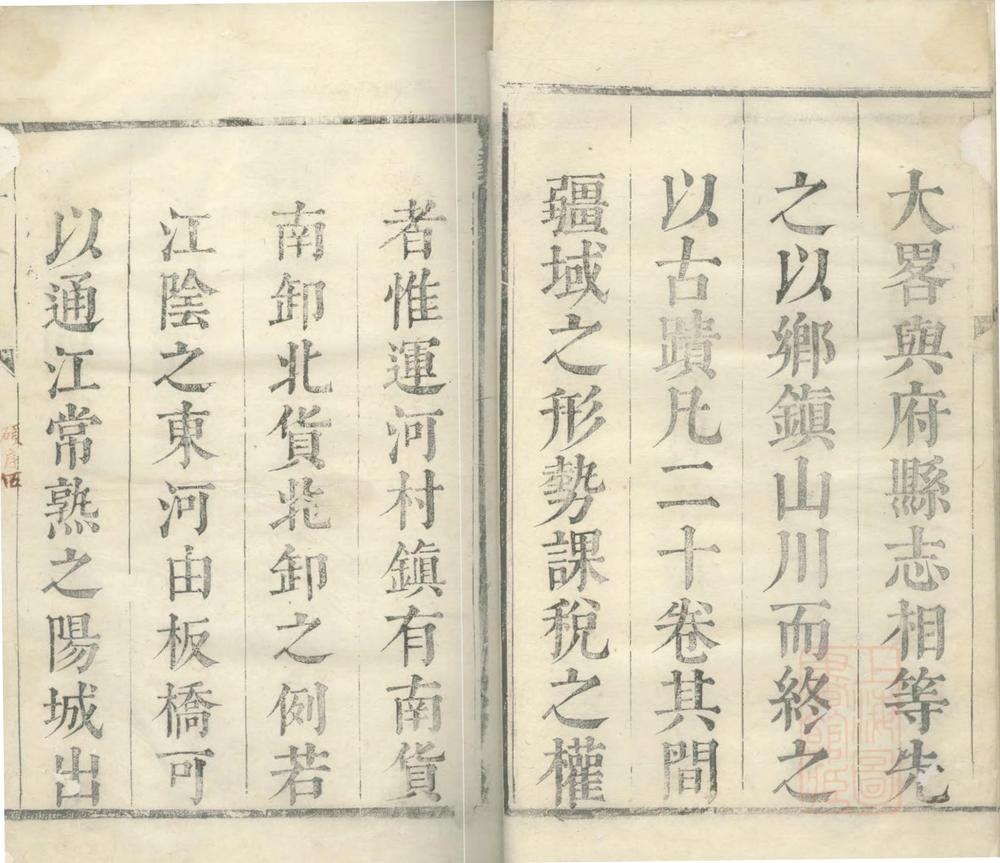 大畧與府縣志相等先
之以鄉鎮山川而終之
以古蹟凡二十卷其間
疆域之形勢課稅之權
者惟運河村鎮有南貨
南卸北貨北卸之例若
江陰之東河由板橋可
以通江常熟之陽城出